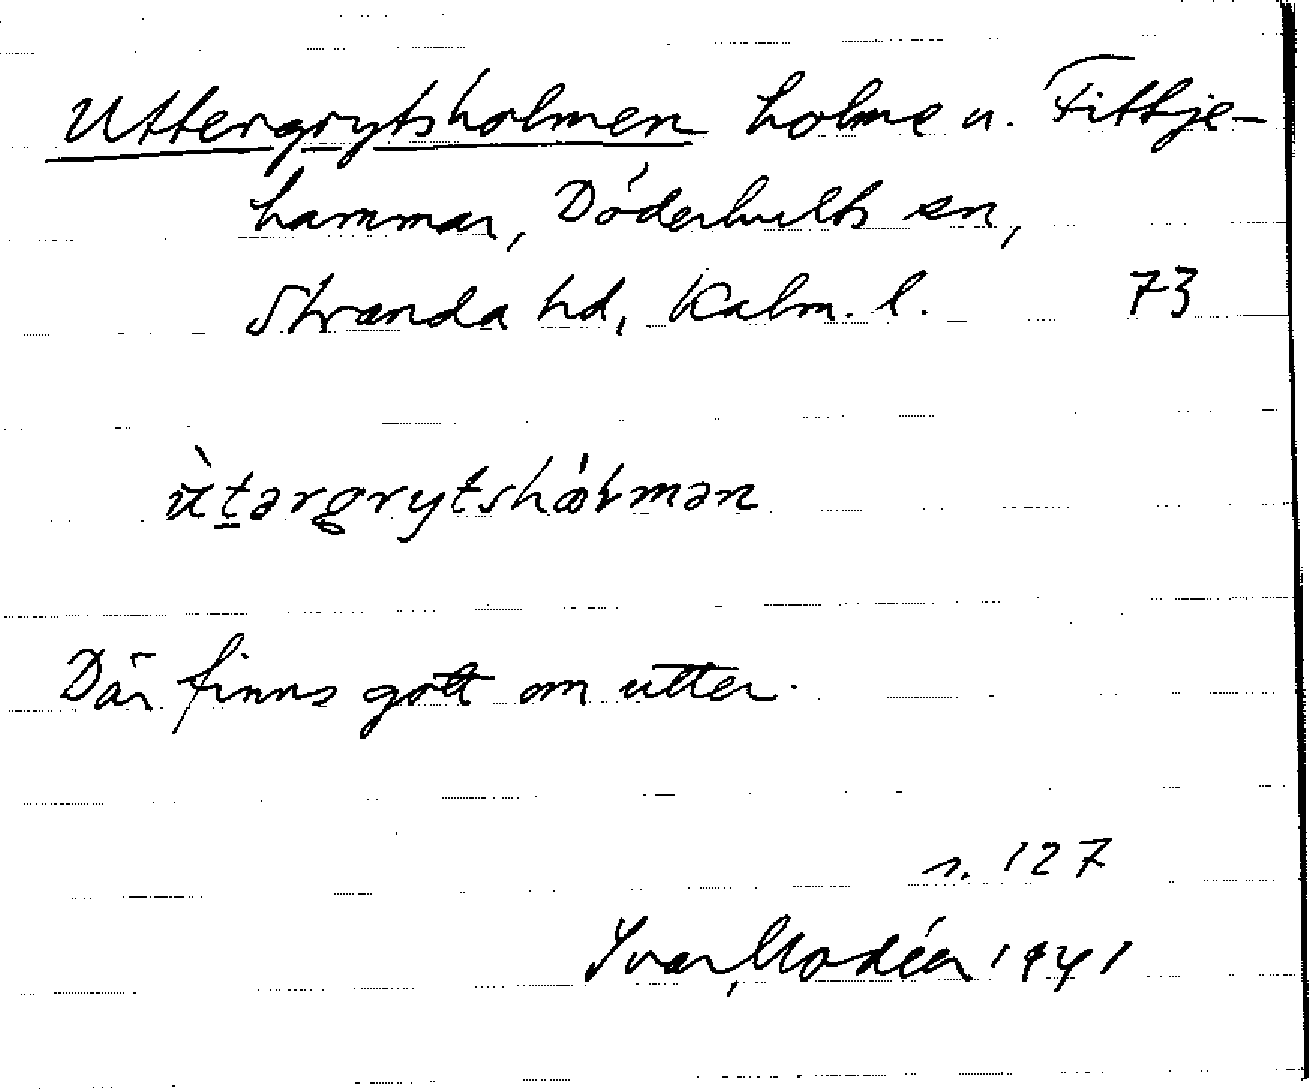 Uttergrytsholmen holme u. Fittje-
hammar, Döderhults sn,
Stranda hd, Kalm. l. 73
ùtərgrytshȯlmən
Där finns gott om utter.
s. 127
Ivar Modéer 1941